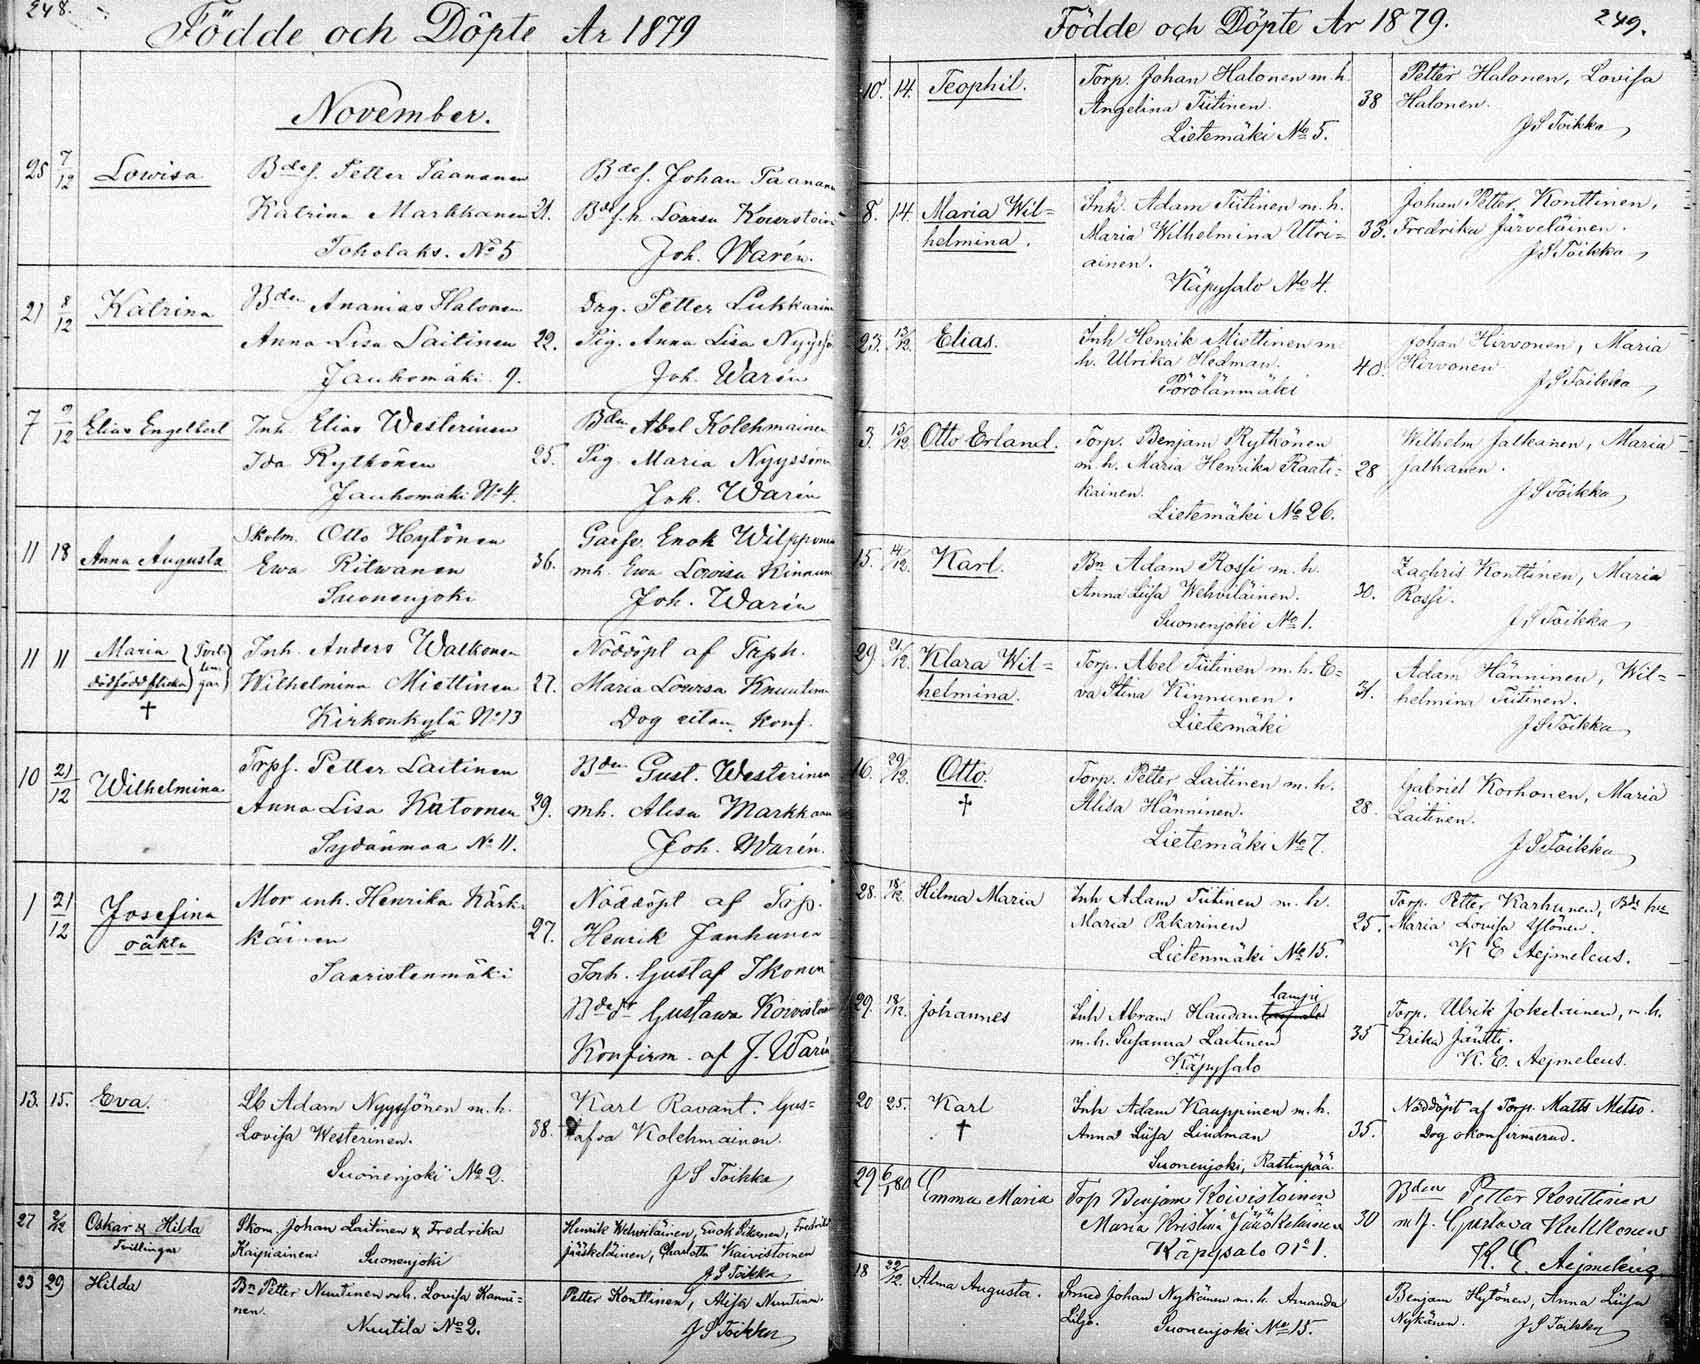 248.
Födde och Döpte År 1879
November.
25 7/12 Lowisa
Bdes. Petter Paananen
Katrina Markkanen 21.
Toholaks. No 5
Bdes. Johan Paananen
Bdes.h. Lowisa
Joh. Warén.
21 8/12 Katrina
Bden Ananias Halonen
Anna Lisa Laitinen 22.
Jauhomäki 9.
Drg. Petter Lukkarinen
Pig. Anna Lisa
Joh. Warén
7 9/12 Elias Engelbert
Inh. Elias Westerinen
Ida Rytkönen 25.
Jauhomäki No 4.
Bden Abel Kolehmainen
Pig. Maria Nyyssönen
Joh. Warén
11 18 Anna Augusta
Skolm. Otto Hytönen
Ewa Ritwanen 36.
Suonenjoki
Garfv. Enok Wilpponen
mh. Ewa Lowisa Kinnunen
Joh. Warén
11 11 Maria
dödfödd flicka
†
Inh. Anders Walkonen
Wilhelmina Miettinen 27.
Kirkonkylä No 13
Nöddöpt af Trph.
Maria Lowisa
Dog utan Konf.
10 21/12 Wilhelmina
Trps. Petter Laitinen
Anna Lisa Kutvonen 29.
No 11.
Bden Gust. Westerinen
mh. Alisa Markkanen
Joh. Warén.
1 21/12 Josefina
oäkta
Mor inh. Henrika Kärk-
käinen 27.
Saaristenmäki
Nöddöpt af Trp.
Henrik Janhunen
Inh. Gustaf Ikonen
Gustawa Koivistoinen
Konfirm. af J. Warén
13. 15. Eva.
Lb Adam Nyyssönen m.h.
Lovisa Westerinen. 38.
Suonenjoki No 2.
Karl Ravant. Gus-
tafva Kolehmainen.
J S Toikka
27 2/12 Oskar & Hilda
Tvillingar
Skom. Johan Laitinen & Fredrika
Kaipiainen Suonenjoki
Henrik Wehviläinen, Enok Fredrika
Jääskeläinen, Charlotta Koivistoinen
J S Toikka
23 29 Hilda
Bn Petter Nuutinen och Lovisa
nen.
Nuutila No 2.
Petter Konttinen, Alisa Nuutinen
J S Toikka
Födde och Döpte År 1879.
249.
10. 14. Teophil.
Torp. Johan Halonen m.h.
Angelina Tiitinen. 38
Lietemäki No 5.
Petter Halonen, Lovisa
Halonen.
J S Toikka
8. 14. Maria Wil-
helmina.
Inh. Adam Tiitinen m.h.
Maria Wilhelmina Utri- 33.
ainen.
Käpysalo No 4.
Johan Petter Konttinen,
Fredrika Järveläinen.
J S Toikka
23. 13/12. Elias.
Inh Henrik Miettinen m.
h. Ulrika Hedman. 40.
Pörölänmäki
Johan Hirvonen, Maria
Hirvonen
J S Toikka
3. 13/12. Otto Erland.
Torp. Benjam Rytkönen
m.h. Maria Henrika Raati- 28
kainen.
Lietemäki No 26.
Wilhelm Jalkanen, Maria
Jalkanen.
J S Toikka
15. 4/12. Karl.
Bn Adam Rossi m.h.
Anna Liisa Wehviläinen. 30.
Suonenjoki No 1.
Zachris Konttinen, Maria
Rossi.
J S Toikka
29 21/12. Klara Wil-
helmina.
Torp. Abel Tiitinen m.h. E-
va Stina Kinnunen. 31.
Lietemäki
Adam Hänninen, Wil-
helmina Tiitinen.
J S Toikka
16. 29/12. Otto.
†
Torp. Petter Laitinen m.h.
Alisa Hänninen. 28.
Lietemäki No 7.
Gabriel Korhonen, Maria
Laitinen.
J S Toikka
28. 18/12. Hilma Maria
Inh Adam Tiitinen m.h.
Maria Pakarinen 25.
Lietenmäki No 15.
Torp. Petter Karhunen, Bds hu
Maria Lovisa Ylönen.
K E Aejmeleus.
29. 18/12. Johannes
lampi
Inh Abram Haudan
m.h. Susanna Laitinen 35
Käpysalo
Torp. Ulrik Jokelainen, m.h.
Erika Jäntti.
K. E. Aejmeleus.
20 25. Karl
†
Inh Adam Kauppinen m.h.
Anna Liisa Lindman 35.
Suonenjoki, Rattinpää
Nöddöpt af Torp. Matts Metso.
Dog okonfirmerad.
29 6/1 80 Emma Maria
Torp Benjam Koivistoinen
Maria Kristina Jääskeläinen 30
Käpysalo No 1.
Bden Petter Konttinen
m h. Gustava Kukkonen
K. E. Aejmeleus
18 22/12. Alma Augusta.
Smed Johan Nykänen m.h. Amanda
Liljo. Suonenjoki No 15.
Benjam Hytönen, Anna Liisa
Nykänen. J S Toikka